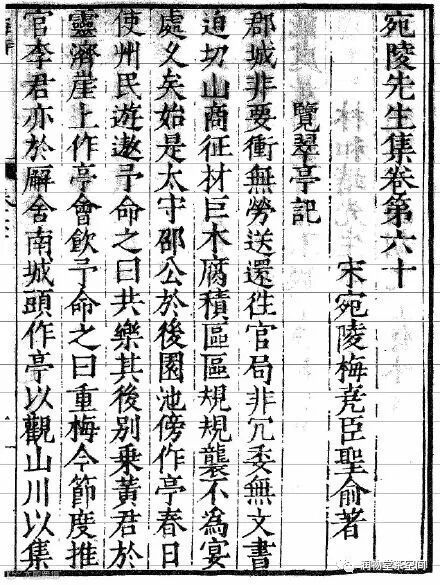 宛陵先生集卷第六十
宋宛陵梅堯臣聖俞著
覽翠亭記
郡城非要衝無勞送還徃官局非冗委無文書
迫切山商征材巨木腐積區區規規襲不為宴
處久矣始是太守邵公於後園池傍作亭春日
使州民遊遨予命之曰共樂其後別乗黃君於
靈濟崖上作亭會飲予命之曰重梅今節度推
官李君亦於廨舍南城頭作亭以觀山川以集